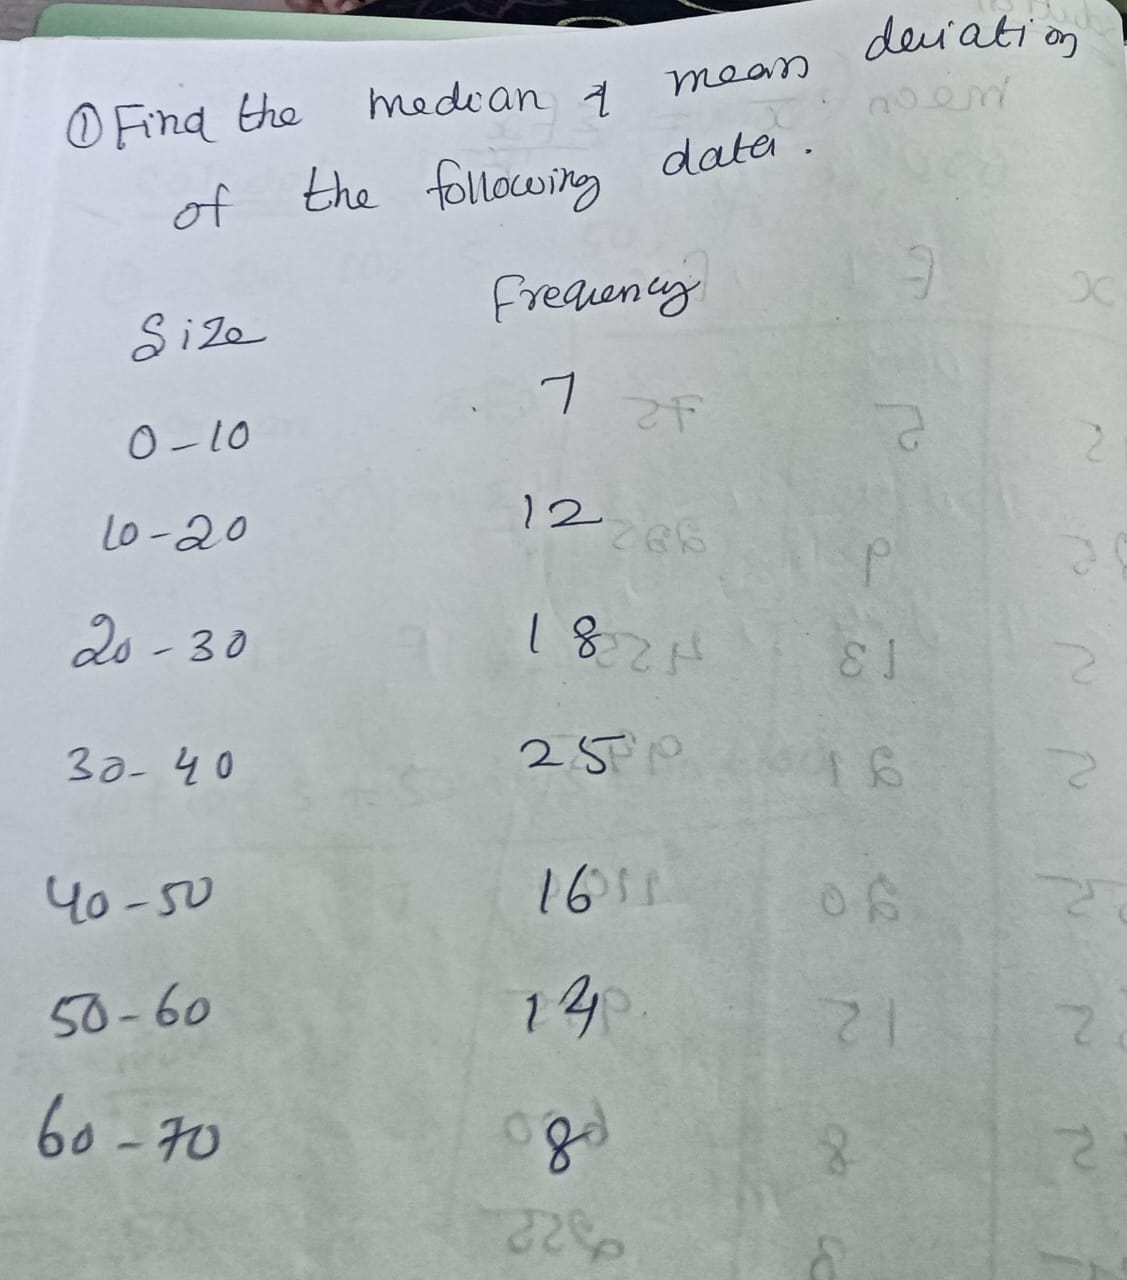 ① Find the median & mean deviation
of the following data.
Size Frequency
0-10 7
10-20 12
20-30 18
30-40 25
40-50 16
50-60 14
60-70 8